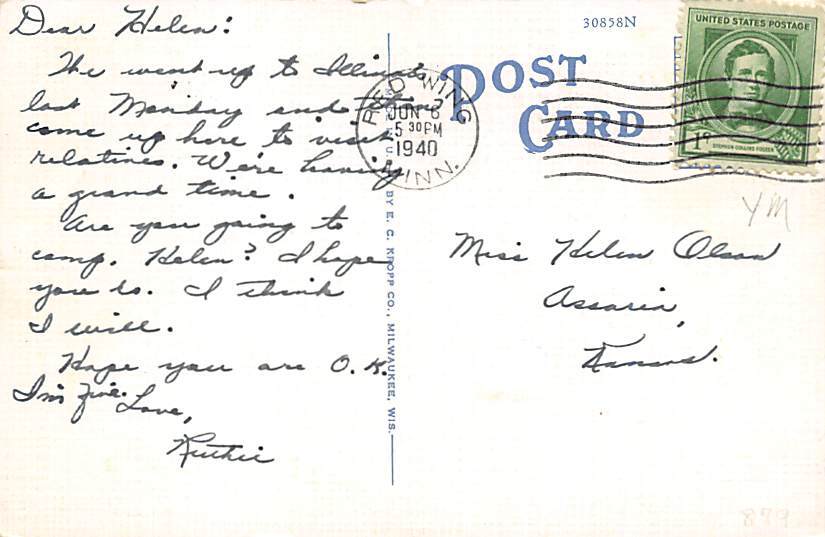 Dear Helen:
We went up to Illinois
last Monday and then
came up here to visit
relatives. We're having
a grand time.
Are you going to
camp, Helen? I hope
you do. I think
I will.
Hope you are O.K.
I'm fine.
Love,
Ruthie
30858N
POST
CARD
RED WING
JUN 6
5 30 PM
1940
MINN.
UNITED STATES POSTAGE
1¢
STEPHEN COLLINS FOSTER
YM
Miss Helen Olson
Assaria,
Kansas.
BY E. C. KROPP CO., MILWAUKEE, WIS.
879